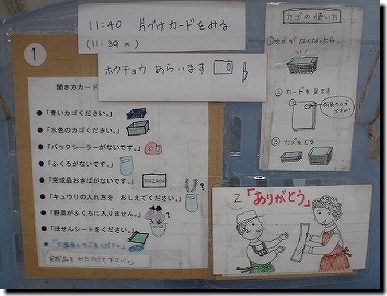 11:40 片づけカードをみる
(11:39 ×)
ホウチョウ あらいます
1
聞き方カード
●「青いカゴください。」
●「水色のカゴください。」
●「バックシーラーがないです。」
●「ふくろがないです。」
●「完成品おきばがないです。」
●「キュウリの入れ方を おしえてください。」
●「野菜がふくろに入りません。」
●「ほせんシートをください。」
完成品をかたづけて下さい。」
カゴの使い方
①カゴがなくなったら
②カードを見ます
③カゴをとる
2 「ありがとう」